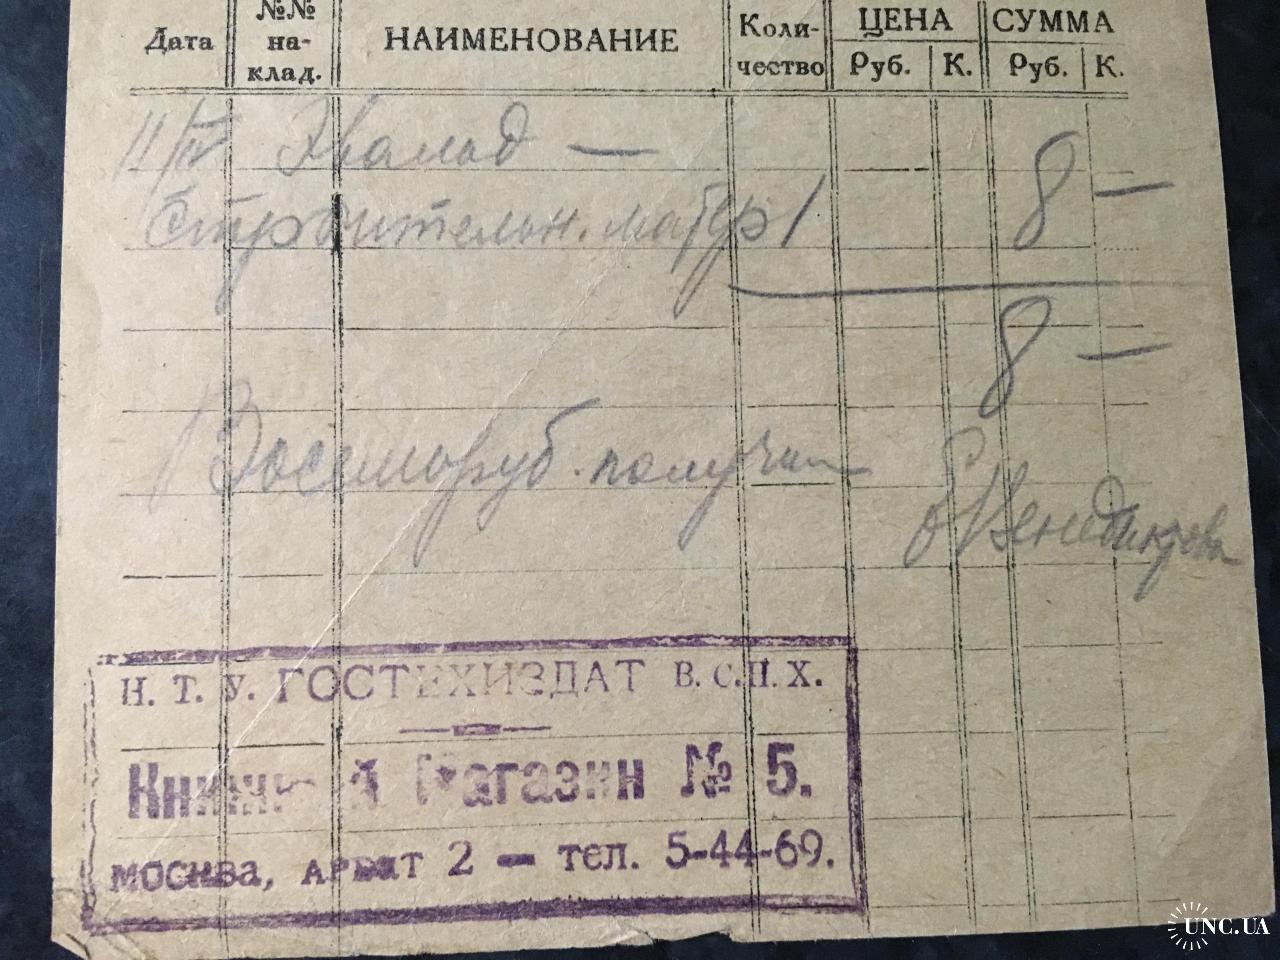 Дата №№ на- клад. НАИМЕНОВАНИЕ Коли- чество ЦЕНА Руб. К. СУММА Руб. К.
11/IV —
Строительн. матер 1 8 —
8 —
Восемь руб. получил
Н. Т. У. ГОСТЕХИЗДАТ В. С. Н. Х.
Книжный Магазин № 5.
МОСКВА, АРБАТ 2 — тел. 5-44-69.
UNC.UA